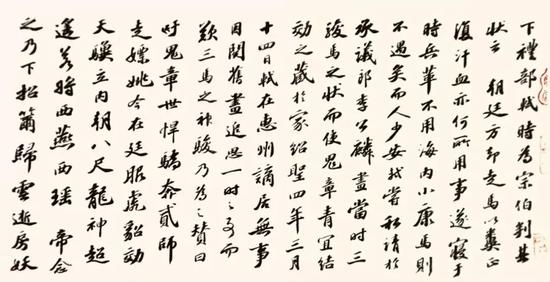 下禮部軾時為宗伯判其
狀云 朝廷方却走馬以糞正
復汗血亦何所用事遂寢于
時兵革不用海內小康馬則
不遇矣而人少安軾嘗私請於
承議郎李公麟畫當時三
駿馬之狀而使鬼章青宜結
効之藏於家紹聖四年三月
十四日軾在惠州謫居無事
因閱舊畫追思一時之事而
歎三馬之神駿乃為之贊曰
吁鬼章世悍驕奔貳師
走嫖姚今在廷服虎貂効
天驥立內朝八尺龍神超
遙若將西燕西瑤 帝念
之乃下招歸雲逝房妖